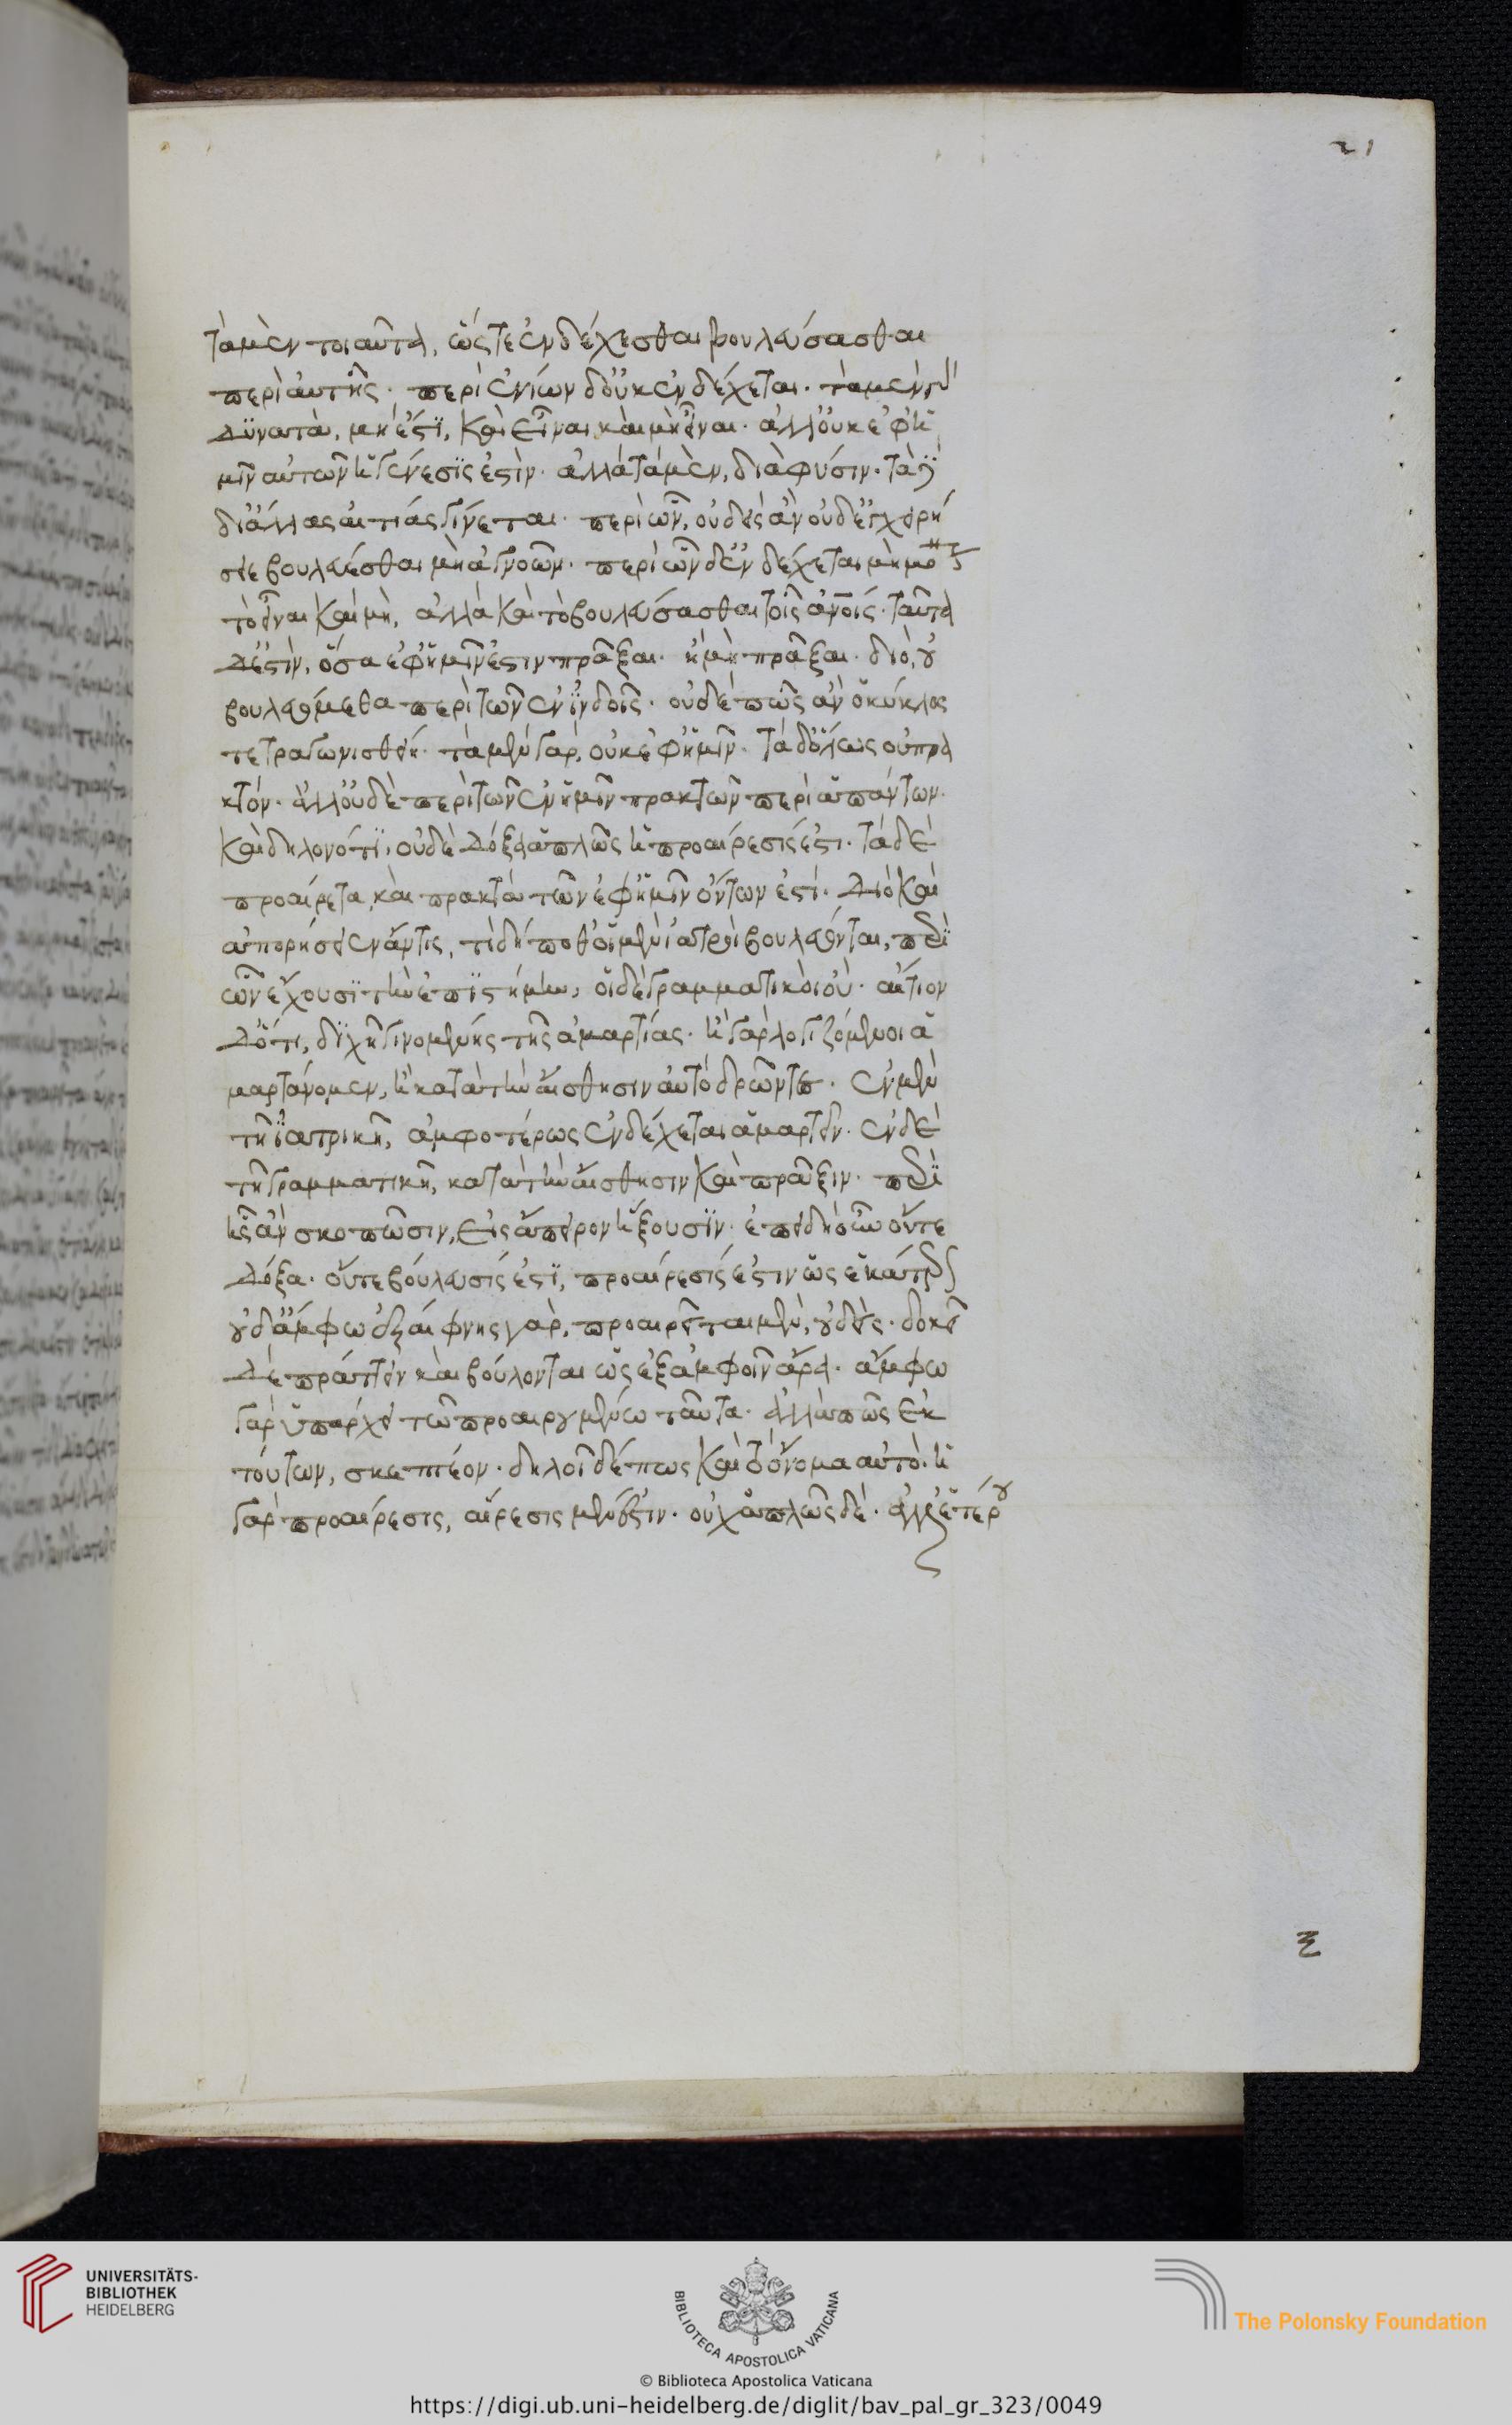 21
τὰ μὲν τοιαῦτα, ὥστε ἐνδέχεσθαι βουλεύσασθαι
περὶ αὐτῆς· περὶ ἐνίων δ' οὐκ ἐνδέχεται· τὰ μὲν γ
δυνατὰ, μὴ ἐστὶ, καὶ εἶναι καὶ μὴ εἶναι· ἀλλ' οὐκ ἐφ' ἡ
μῖν αὐτῶν ἡ γένεσίς ἐστὶν· ἀλλὰ τὰ μὲν, διὰ φύσιν· τὰ δὲ
δι' ἄλλας αἰτίας γίνεται· περὶ ὧν, οὐδεὶς ἂν οὐδ' ἐγχειρή
σειε βουλεύεσθαι μὴ ἀγνοῶν· περὶ ὧν δ' ἐνδέχεται μὴ μό
τὸ εἶναι καὶ μὴ, ἀλλὰ καὶ τὸ βουλεύσασθαι τοῖς ἀνοις· ταῦτα
δ' ἐστὶν, ὅσα ἐφ' ἡμῖν ἐστιν πρᾶξαι· ἢ μὴ πρᾶξαι· διὸ, οὐ
βουλευόμεθα περὶ τῶν ἐν ἰνδοῖς· οὐδὲ πῶς ἂν ὁ κύκλος
τετραγωνισθείη· τὰ μὲν γὰρ, οὐκ ἐφ' ἡμῖν· τὰ δ' ὅλως οὐ πρα
κτόν· ἀλλ' οὐδὲ περὶ τῶν ἐν ἡμῖν πρακτῶν περὶ ἁπάντων·
καὶ δηλονότι, οὐδὲ δόξα ἁπλῶς ἡ προαίρεσίς ἐστι· τὰ δὲ
προαίρετα, καὶ πρακτὰ τῶν ἐφ' ἡμῖν ὄντων ἐστί· διὸ καὶ
ἀπορήσειεν ἄν τις, τί δή ποθ' οἱ μὲν ἰατροὶ βουλεύονται, περὶ
ὧν ἔχουσι τὴν ἐπιστήμην, οἱ δὲ γραμματικοὶ οὐ· αἴτιον
δ' ὅτι, διχῆ γινομένης τῆς ἁμαρτίας· ἢ γὰρ λογιζόμενοι ἁ
μαρτάνομεν, ἢ κατὰ τὴν αἴσθησιν αὐτὸ δρῶντες· ἐν μὲν
τῇ ἰατρικῇ, ἀμφοτέρως ἐνδέχεται ἁμαρτεῖν· ἐν δὲ
τῇ γραμματικῇ, κατὰ τὴν αἴσθησιν καὶ πρᾶξιν· περὶ
ἧς ἂν σκοπῶσιν, εἰς ἄπειρον ἥξουσιν· ἐπειδὴ οὖν οὔτε
δόξα· οὔτε βούλευσίς ἐστι, προαίρεσίς ἐστιν ὡς ἑκάτερον
οὐδ' ἄμφω ἐξαίφνης γὰρ, προαιρεῖται μὲν, οὐδείς· δοκεῖ
δὲ πράττειν καὶ βούλονται ὡς ἐξ ἀμφοῖν ἄρα· ἄμφω
γὰρ ὑπάρχει τῷ προαιρουμένῳ ταῦτα· ἀλλὰ πῶς ἐκ
τούτων, σκεπτέον· δηλοῖ δέ πως καὶ τὸ ὄνομα αὐτό· ἡ
γὰρ προαίρεσις, αἵρεσις μὲν ἐστιν· οὐχ ἁπλῶς δέ· ἀλλ' ἑτέρου
UNIVERSITÄTS-
BIBLIOTHEK
HEIDELBERG
BIBLIOTECA APOSTOLICA VATICANA
The Polonsky Foundation
© Biblioteca Apostolica Vaticana
https://digi.ub.uni-heidelberg.de/diglit/bav_pal_gr_323/0049